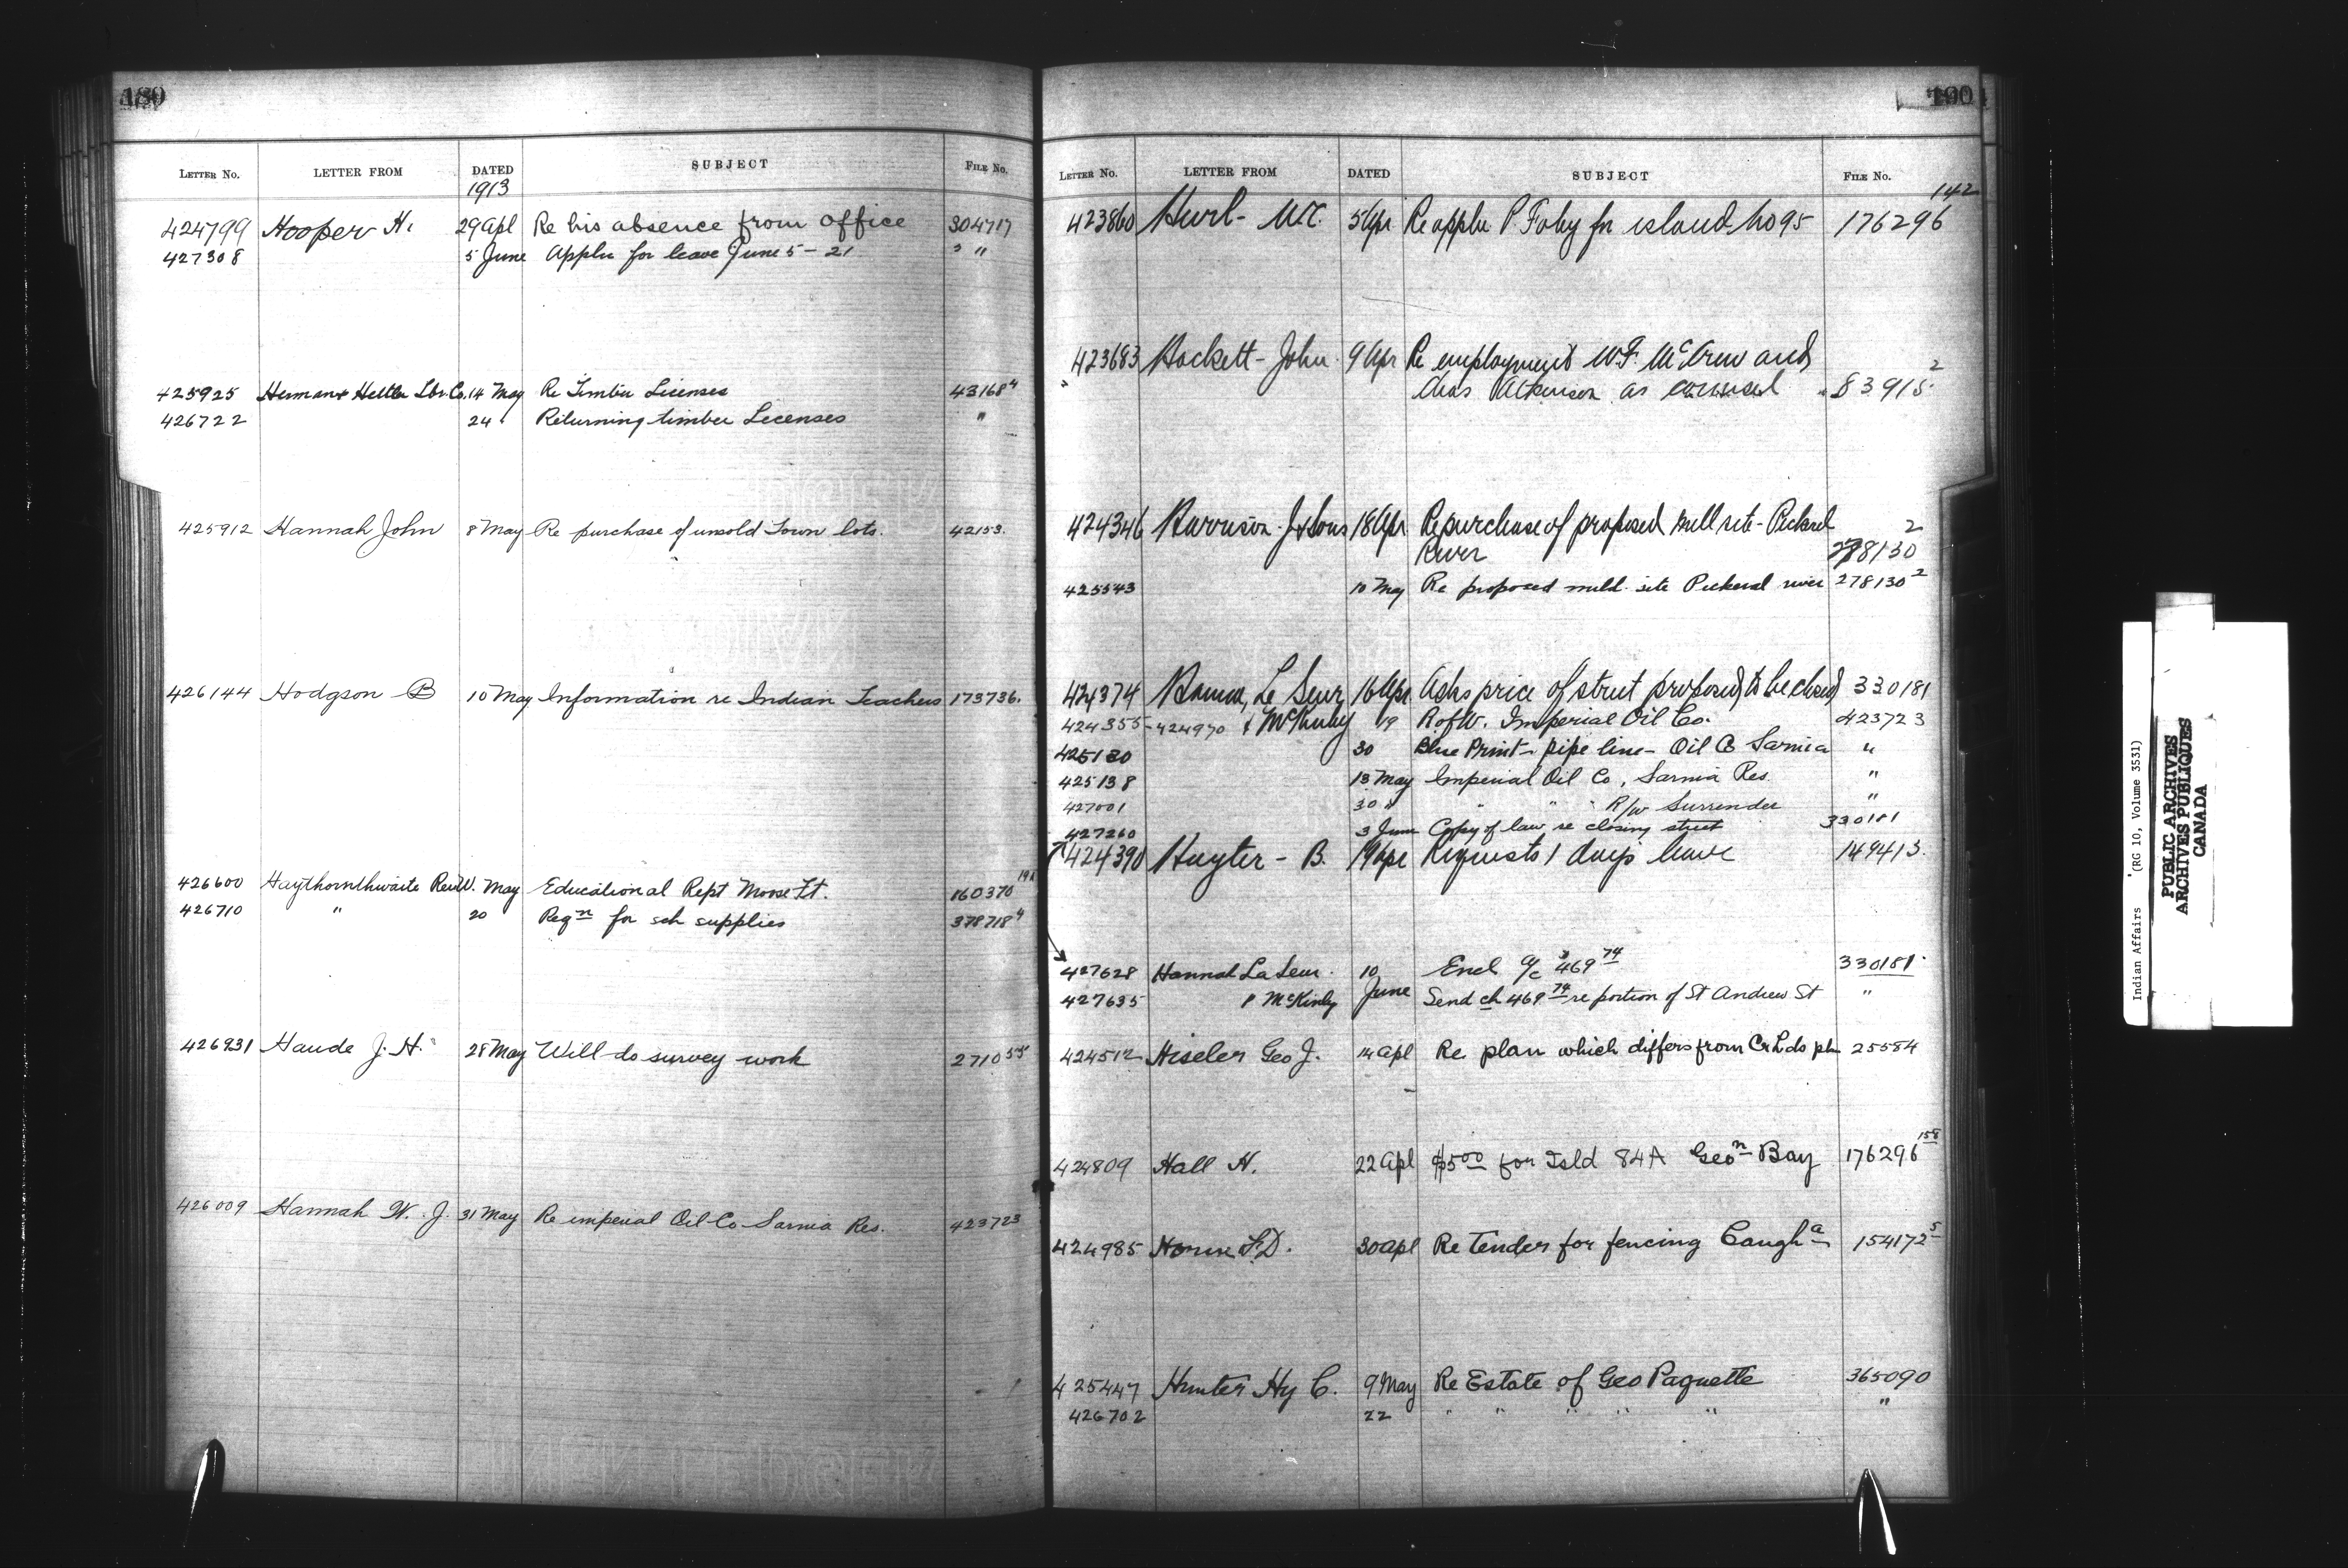 LETTER No. LETTER FROM DATED SUBJECT FILE No.
1913
424799 Hooper H. 29 apl Re his absence from office 304717
427308 5 June Appln for leave June 5 - 21 " "
425925 Herman Hettler Lbr. Co. 14 May Re Timber Licenses 43168⁴
426722 24 " Returning timber Licenses "
425912 Hannah John 8 May Re purchase of unsold Town lots. 42153.
426144 Hodgson B 10 May Information re Indian Teachers 173736.
426600 Haythornthwaite Rev W. May Educational Rept Moose Ft. 160370
426710 " 20 Reqn for sch supplies 378718⁴
426931 Haude J. H. 28 May Will do survey work 2710
426009 Hannah W. J. 31 May Re imperial Oil Co Sarnia Res. 423723
190
LETTER No. LETTER FROM DATED SUBJECT FILE No.
142
423860 5 Apr Re appln P. for island No 95 176296
423683 Hackett - John 9 Apr Re employment W.F. and
" Atkinson as counsel 83915²
424346 Harrison J & Sons 18 Apr Re purchase of proposed mill site - Pickerel 2
River 278130
425543 10 May Re proposed mill site Pickeral river 278130²
424374 Hanna, Le Seur 16 Apr. Asks price of street proposed to be closed 330181
424355 - 424970 & McKinley 19 R of W. Imperial Oil Co. 423723
425130 30 Blue Print - pipe line - Oil Co Sarnia "
425138 13 May Imperial Oil Co, Sarnia Res. "
427001 30 " " " " R/w Surrender "
427260 3 June Copy of law re closing street 330181
424390 Hayter - B. 19 Apr Requests 1 days leave 149413.
427628 Hannah La Seur. 10 Encl a/c $469 74 330181
427635 & McKinly June Send ch 469 74 re portion of St Andrew St "
424512 Hiseler Geo J. 14 apl Re plan which differs from Cr Lds pln 25584
424809 Hall H. 22 apl $5 00 for Isld 84A Geo n Bay 176296 158
424985 Horne 30 apl Re Tender for fencing Caugh a 154172⁵
425447 Hunter Hy C. 9 May Re Estate of Geo Paquette 365090
426702 22 " " " " " "
Indian Affairs (RG 10, Volume 3531)
PUBLIC ARCHIVES
ARCHIVES PUBLIQUES
CANADA